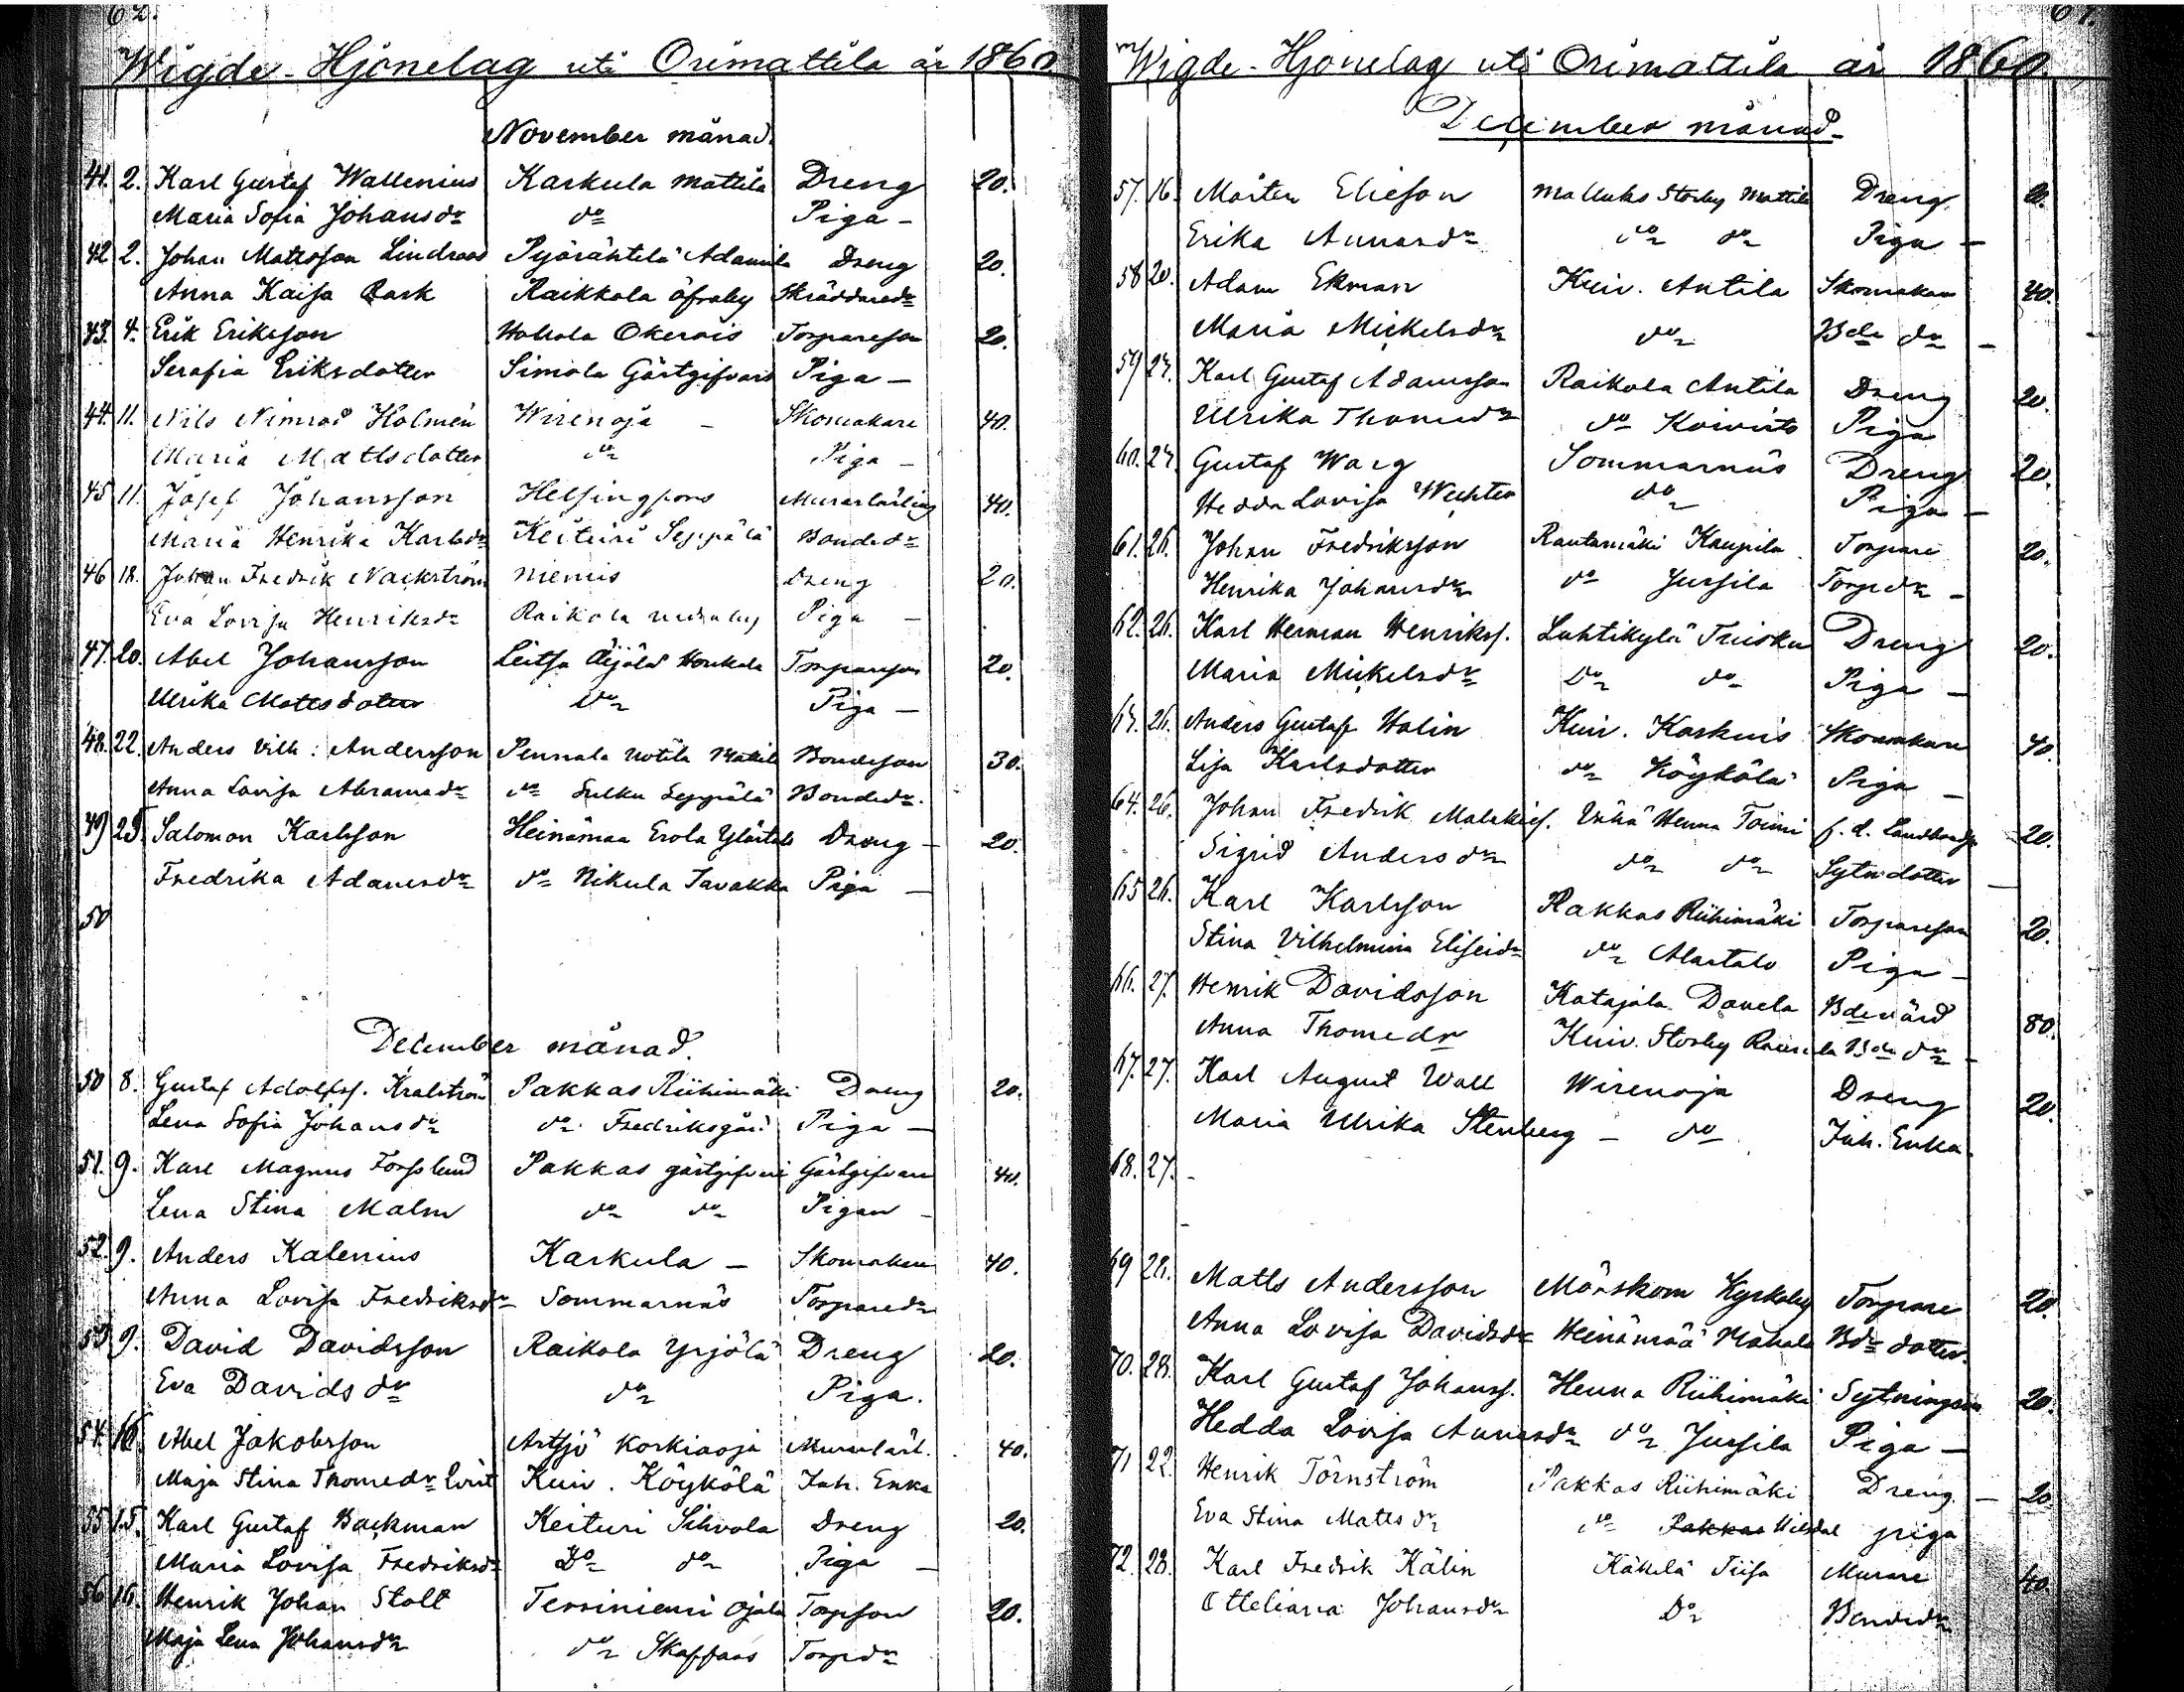 62.
Wigde-Hjonelag uti Orimattila år 1860
November månad.
41. 2. Karl Gustaf Wallenius Karkula Mattila Dreng 20.
Maria Sofia Johansdr do Piga -
42 2. Johan Matsson Lindroos Pyörähtelä Adamila Dreng 20.
Anna Kaisa Rask Raikkola öfraby Skräddaredr
43. 4. Erik Eriksson Hollola Okerois Torpareson 20.
Serafia Eriksdotter Simola Gästgifvars Piga -
44. 11. Nils Nimrod Holmén Wirenoja - Skomakare 40.
Maria Mattsdotter do Piga -
45 11. Josef Johansson Helsingfors Murarlärling 40.
Maria Henrika Karlsdr Keituri Seppälä Bondedr
46 18. Johan Fredrik Nackström Niemis Dreng 20.
Eva Lovisa Henriksdr Raikola nedraby Piga -
47. 20. Abel Johansson Leitsa Äijälä Honkala Torpareson 20.
Ulrika Mattsdotter Do Piga -
48. 22. Anders Vilh: Andersson Pennala Notila Mäkilä Bondeson 30.
Anna Lovisa Abramsdr do Sulku Seppälä Bondedr.
49 25. Salomon Karlsson Heinämaa Erola Ylärtalo Dreng - 20.
Fredrika Adamsdr do Nikula Tavakka Piga -
50
December månad.
50 8. Gustaf Adolfss. Kralström Pakkas Riihimäki Dreng 20.
Lena Sofia Johansdr do Fredriksgård Piga -
51. 9. Karl Magnus Forsslund Pakkas gästgifveri Gästgifvare 40.
Lena Stina Malm do do Pigan -
52. 9. Anders Kalenius Karkula - Skomakare 40.
Anna Lovisa Fredriksdr Sommarnäs Torparedr
53 9. David Davidsson Raikola Yrjölä Dreng 20.
Eva Davidsdr do Piga.
54. 16 Abel Jakobsson Artsjö Korkiaoja Murarlärl. 40.
Maja Stina Thomedr Kuiv. Köykölä Inh. Enka
55 15. Karl Gustaf Backman Keituri Sihvola Dreng 20.
Maria Lovisa Fredriksdr Do do Piga -
56 16. Henrik Johan Stolt Terriniemi Ojala Torpson 20.
Maja Lena Johansdr do Skaffars Torpdr
Wigde-Hjonelag uti Orimattila år 1860.
December månad-
57. 16. Mårten Elieson Malluks Storby Mattila Dreng. 20.
Erika Annasdr do do Piga -
58 20. Adam Ekman Kuiv. Antila Skomakare 40.
Maria Mickelsdr do Bde dr -
59 23. Karl Gustaf Adamsson Raikola Antila Dreng 20.
Ulrika Thomedr do Koivisto Piga
60. 23 Gustaf Warg Sommarnäs Dreng 20.
Hedda Lovisa Wechter do Piga -
61. 26. Johan Fredriksson Rautamäki Kaupila Torpare 20.
Henrika Johansdr do Jussila Torpdr -
62. 26. Karl Herman Henrikss. Luhtikylä Tuisku Dreng 20.
Maria Mickelsdr Do do Piga -
63. 26. Anders Gustaf Halin Kuiv. Karkuis Skomakare 40
Lisa Karlsdotter do Köykölä Piga -
64. 26. Johan Fredrik Malakies. Vähä Henna Toimi f. d. Landbonde 20.
Sigrid Andersdr do do Sytn.dotter -
65 26. Karl Karlsson Pakkas Riihimäki Torpareson 20.
Stina Vilhelmina Eliseidr do Alartalo Piga -
66. 27. Henrik Davidsson Katajala Davela Bdevärd 80.
Anna Thomedr Kuiv. Storby Bde dr -
67. 27. Karl August Wall Wirenoja Dreng 20.
Maria Ulrika Stenberg - do Inh. Enka
68. 27. -
-
69 28. Matts Andersson Mörskom Kyrkoby Torpare 20.
Anna Lovisa Davidsdr Heinämaa Mahala Bde dotter.
70. 28. Karl Gustaf Johanss. Henna Riihimäki Sytningsson 20.
Hedda Lovisa Annasdr do Jussila Piga -
71 22. Henrik Törnström Pakkas Riihimäki Dreng. - 20
Eva Stina Mattsdr do Pakkas piga
72. 28. Karl Fredrik Kälin Käkelä Tiisa Murare 40.
Otteliana Johansdr Do Bondedr